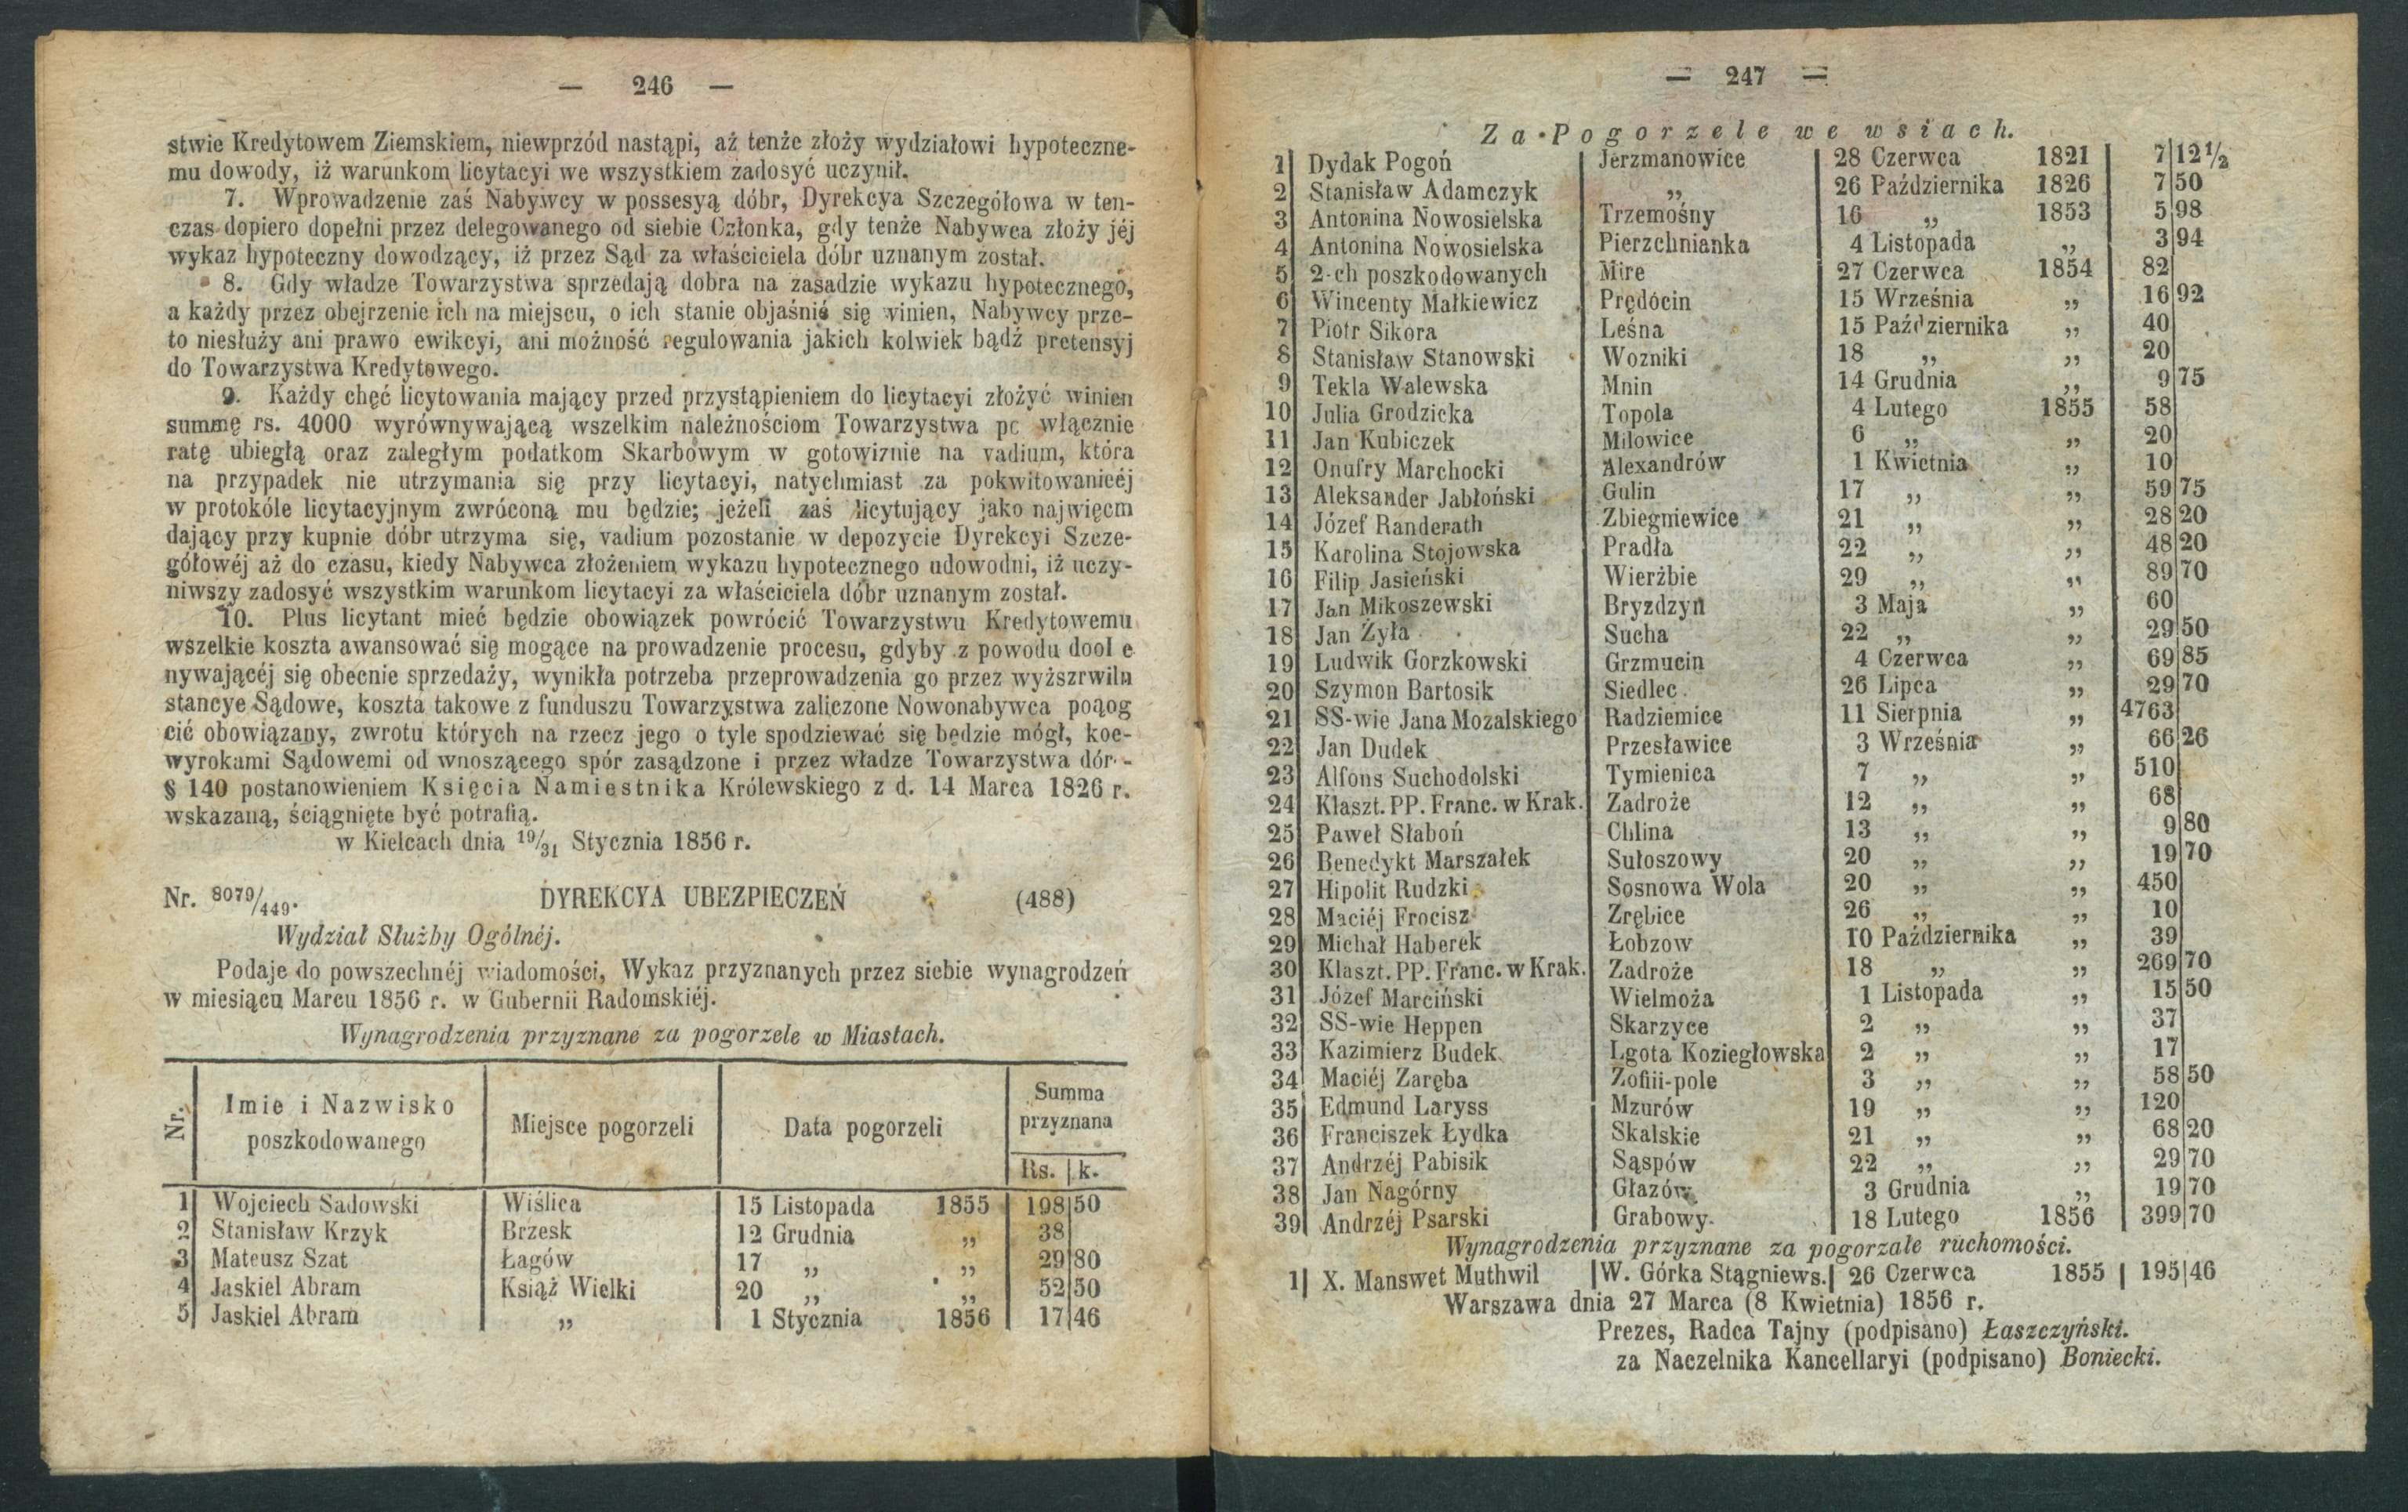 — 246 —
stwie Kredytowem Ziemskiem, niewprzód nastąpi, aż tenże złoży wydziałowi hypoteczne-
mu dowody, iż warunkom licytacyi we wszystkiem zadosyć uczynił.
7. Wprowadzenie zaś Nabywcy w possesyą dóbr, Dyrekcya Szczegółowa w ten-
czas dopiero dopełni przez delegowanego od siebie Członka, gdy tenże Nabywca złoży jéj
wykaz hypoteczny dowodzący, iż przez Sąd za właściciela dóbr uznanym został.
8. Gdy władze Towarzystwa sprzedają dobra na zasadzie wykazu hypotecznego,
a każdy przez obejrzenie ich na miejscu, o ich stanie objaśnić się winien, Nabywcy prze-
to niesłuży ani prawo ewikcyi, ani możność regulowania jakich kolwiek bądź pretensyj
do Towarzystwa Kredytowego.
9. Każdy chęć licytowania mający przed przystąpieniem do licytacyi złożyć winien
summę rs. 4000 wyrównywającą wszelkim należnościom Towarzystwa po włącznie
ratę ubiegłą oraz zaległym podatkom Skarbowym w gotowiznie na vadium, która
na przypadek nie utrzymania się przy licytacyi, natychmiast za pokwitowanieéj
w protokóle licytacyjnym zwróconą mu będzie; jeżeli zaś licytujący jako najwięcm
dający przy kupnie dóbr utrzyma się, vadium pozostanie w depozycie Dyrekcyi Szcze-
gółowéj aż do czasu, kiedy Nabywca złożeniem wykazu hypotecznego udowodni, iż uczy-
niwszy zadosyć wszystkim warunkom licytacyi za właściciela dóbr uznanym został.
10. Plus licytant mieć będzie obowiązek powrócić Towarzystwu Kredytowemu
wszelkie koszta awansować się mogące na prowadzenie procesu, gdyby z powodu dool e
nywającéj się obecnie sprzedaży, wynikła potrzeba przeprowadzenia go przez wyższrwiln
stancye Sądowe, koszta takowe z funduszu Towarzystwa zaliczone Nowonabywca poąog
cić obowiązany, zwrotu których na rzecz jego o tyle spodziewać się będzie mógł, koe-
wyrokami Sądowemi od wnoszącego spór zasądzone i przez władze Towarzystwa dór-
§ 140 postanowieniem Księcia Namiestnika Królewskiego z d. 14 Marca 1826 r.
wskazaną, ściągnięte być potrafią.
w Kielcach dnia 19/31 Stycznia 1856 r.
Nr. 8079/449. DYREKCYA UBEZPIECZEŃ (488)
Wydział Służby Ogólnéj.
Podaje do powszechnéj wiadomości, Wykaz przyznanych przez siebie wynagrodzeń
w miesiącu Marcu 1856 r. w Gubernii Radomskiéj.
Wynagrodzenia przyznane za pogorzele w Miastach.
Nr. | Imie i Nazwisko poszkodowanego | Miejsce pogorzeli | Data pogorzeli | Summa przyznana Rs. | k.
1 Wojciech Sadowski Wiślica 15 Listopada 1855 198 50
2 Stanisław Krzyk Brzesk 12 Grudnia „ 38
3 Mateusz Szat Łagów 17 „ „ 29 80
4 Jaskiel Abram Książ Wielki 20 „ „ 52 50
5 Jaskiel Abram „ 1 Stycznia 1856 17 46
— 247 —
Za Pogorzele we wsiach.
1 Dydak Pogoń Jerzmanowice 28 Czerwca 1821 7 12½
2 Stanisław Adamczyk „ 26 Października 1826 7 50
3 Antonina Nowosielska Trzemośny 16 „ 1853 5 98
4 Antonina Nowosielska Pierzchnianka 4 Listopada „ 3 94
5 2-ch poszkodowanych Mire 27 Czerwca 1854 82
6 Wincenty Małkiewicz Prędocin 15 Września „ 16 92
7 Piotr Sikora Leśna 15 Października „ 40
8 Stanisław Stanowski Wozniki 18 „ „ 20
9 Tekla Walewska Mnin 14 Grudnia „ 9 75
10 Julia Grodzicka Topola 4 Lutego 1855 58
11 Jan Kubiczek Milowice 6 „ „ 20
12 Onufry Marchocki Alexandrów 1 Kwietnia „ 10
13 Aleksander Jabłoński Gulin 17 „ „ 59 75
14 Józef Randerath Zbiegniewice 21 „ „ 28 20
15 Karolina Stojowska Pradła 22 „ „ 48 20
16 Filip Jasieński Wierżbie 29 „ „ 89 70
17 Jan Mikoszewski Bryzdzyń 3 Maja „ 60
18 Jan Żyła Sucha 22 „ „ 29 50
19 Ludwik Gorzkowski Grzmucin 4 Czerwca „ 69 85
20 Szymon Bartosik Siedlec 26 Lipca „ 29 70
21 SS-wie Jana Mozalskiego Radziemice 11 Sierpnia „ 4763
22 Jan Dudek Przesławice 3 Września „ 66 26
23 Alfons Suchodolski Tymienica 7 „ „ 510
24 Klaszt. PP. Franc. w Krak. Zadroże 12 „ „ 68
25 Paweł Słaboń Chlina 13 „ „ 9 80
26 Benedykt Marszałek Sułoszowy 20 „ „ 19 70
27 Hipolit Rudzki Sosnowa Wola 20 „ „ 450
28 Maciéj Frocisz Zrębice 26 „ „ 10
29 Michał Haberek Łobzow 10 Października „ 39
30 Klaszt. PP. Franc. w Krak. Zadroże 18 „ „ 269 70
31 Józef Marciński Wielmoża 1 Listopada „ 15 50
32 SS-wie Heppen Skarzyce 2 „ „ 37
33 Kazimierz Budek Lgota Koziegłowska 2 „ „ 17
34 Maciéj Zaręba Zofiii-pole 3 „ „ 58 50
35 Edmund Laryss Mzurów 19 „ „ 120
36 Franciszek Łydka Skalskie 21 „ „ 68 20
37 Andrzéj Pabisik Sąspów 22 „ „ 29 70
38 Jan Nagórny Głazów 3 Grudnia „ 19 70
39 Andrzéj Psarski Grabowy 18 Lutego 1856 399 70
Wynagrodzenia przyznane za pogorzałe ruchomości.
1 X. Manswet Muthwil W. Górka Stągniews. 26 Czerwca 1855 195 46
Warszawa dnia 27 Marca (8 Kwietnia) 1856 r.
Prezes, Radca Tajny (podpisano) Łaszczyński.
za Naczelnika Kancellaryi (podpisano) Boniecki.